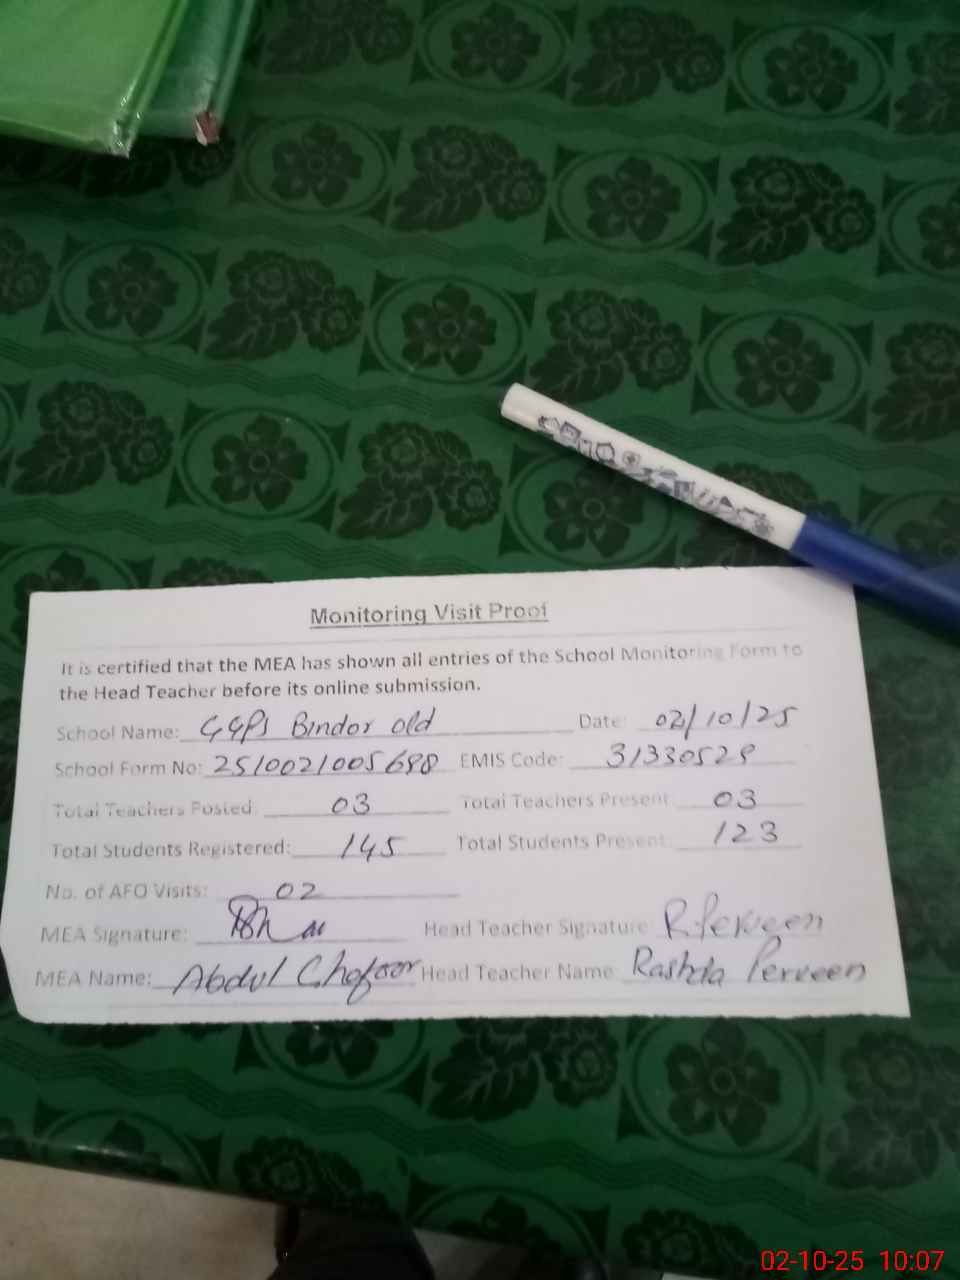 Monitoring Visit Proof
It is certified that the MEA has shown all entries of the School Monitoring Form to
the Head Teacher before its online submission.
School Name: GGPS Bindor old Date: 02/10/25
School Form No: 2510021005698 EMIS Code: 31330529
Total Teachers Posted: 03 Total Teachers Present: 03
Total Students Registered: 145 Total Students Present: 123
No. of AFO Visits: 02
MEA Signature: Head Teacher Signature: R.Perveen
MEA Name: Abdul Ghafoor Head Teacher Name: Rashda Perveen
02-10-25 10:07